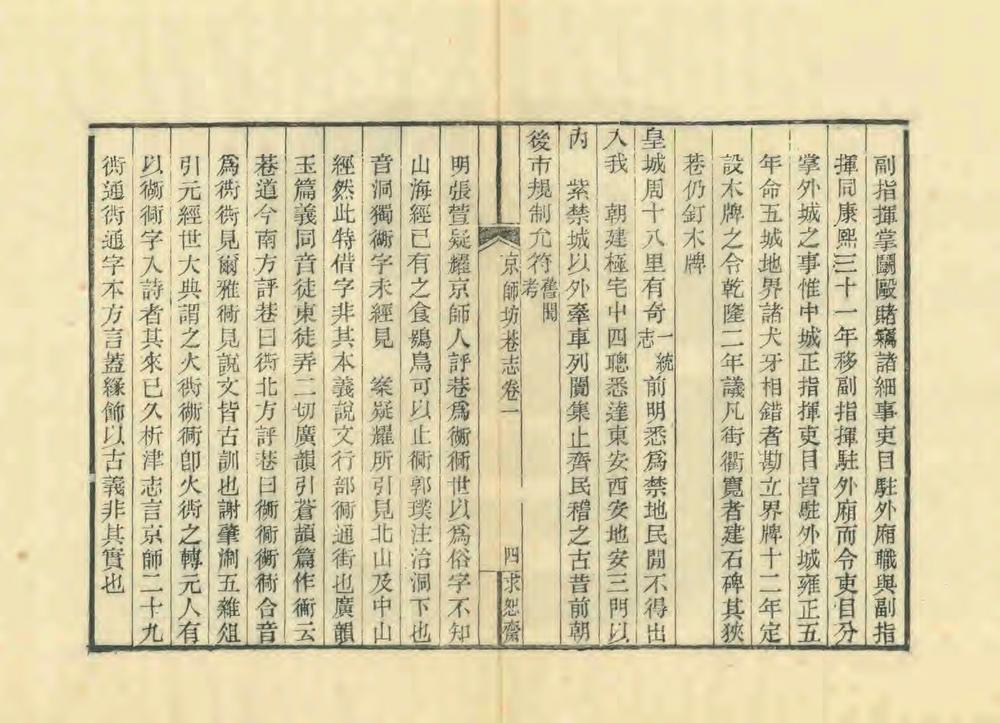 副指揮掌鬭毆賭竊諸細事吏目駐外廂職與副指
揮同康熙三十一年移副指揮駐外廂而令吏目分
掌外城之事惟中城正指揮吏目皆駐外城雍正五
年命五城地界諸犬牙相錯者勘立界牌十二年定
設木牌之令乾隆二年議凡街衢寬者建石碑其狹
巷仍釘木牌
皇城周十八里有奇一統志前明悉爲禁地民閒不得出
入我 朝建極宅中四聰悉達東安西安地安三門以
內 紫禁城以外牽車列闠集止齊民稽之古昔前朝
後市規制允符舊聞考
京師坊巷志卷一
四
求恕齋
明張萱疑耀京師人評巷爲衚衕世以爲俗字不知
山海經已有之食鶚鳥可以止衕郭璞注治洞下也
音洞獨衚字未經見 案疑耀所引見北山及中山
經然此特借字非其本義說文行部衕通街也廣韻
玉篇義同音徒東徒弄二切廣韻引蒼頡篇作衖云
巷道今南方評巷曰衖北方評巷曰衚衕衚衕合音
爲衖衖見爾雅衕見說文皆古訓也謝肇淛五雜俎
引元經世大典謂之火衖衚衕卽火衖之轉元人有
以衚衕字入詩者其來已久析津志言京師二十九
衖通衖通字本方言蓋緣飾以古義非其實也